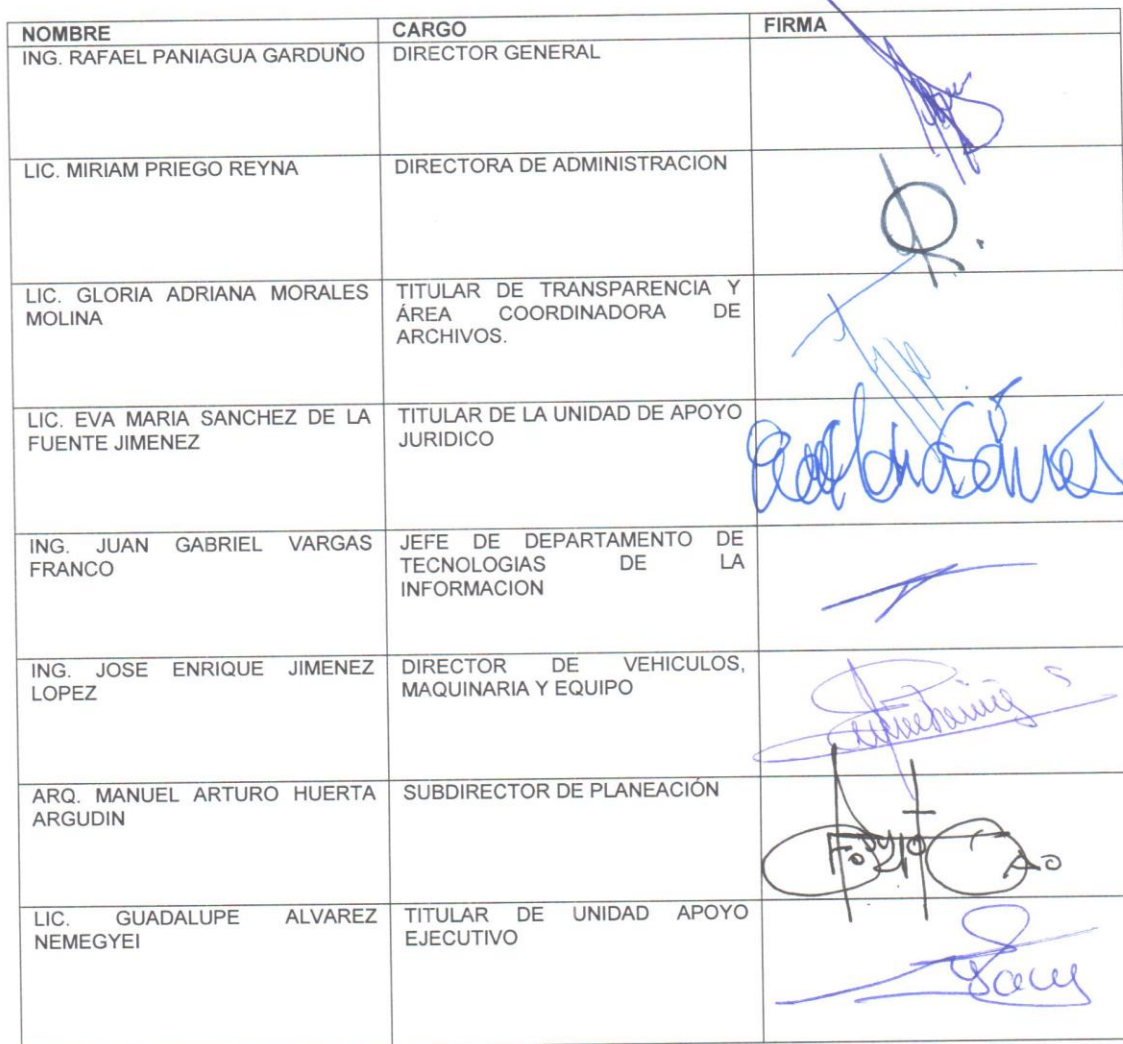 NOMBRE CARGO FIRMA
ING. RAFAEL PANIAGUA GARDUÑO DIRECTOR GENERAL
LIC. MIRIAM PRIEGO REYNA DIRECTORA DE ADMINISTRACION
LIC. GLORIA ADRIANA MORALES
MOLINA
TITULAR DE TRANSPARENCIA Y
ÁREA COORDINADORA DE
ARCHIVOS.
LIC. EVA MARIA SANCHEZ DE LA
FUENTE JIMENEZ
TITULAR DE LA UNIDAD DE APOYO
JURIDICO
ING. JUAN GABRIEL VARGAS
FRANCO
JEFE DE DEPARTAMENTO DE
TECNOLOGIAS DE LA
INFORMACION
ING. JOSE ENRIQUE JIMENEZ
LOPEZ
DIRECTOR DE VEHICULOS,
MAQUINARIA Y EQUIPO
ARQ. MANUEL ARTURO HUERTA
ARGUDIN
SUBDIRECTOR DE PLANEACIÓN
LIC. GUADALUPE ALVAREZ
NEMEGYEI
TITULAR DE UNIDAD APOYO
EJECUTIVO